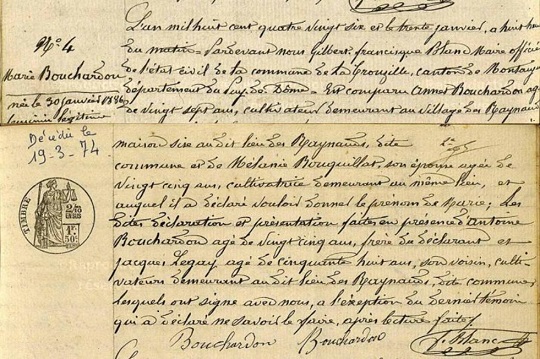 L'an mil huit cent quatre vingt six et le trente janvier, a huit he
du matin = Pardevant nous Gilbert, francisque Blanc Maire officier
de l'état civil de la commune de La Crouzille, canton de Montaigu
département du Puy de Dôme = Est comparu Annet Bouchardon agé
de vingt sept ans, cultivateur demeurant au village des Raynauds
N° 4
Marie Bouchardon
née le 30 Janvier 1886
légitime
Décédée le
19-3-74
maison sise au dit lieu des Raynauds, dite
commune et de Mélanie Bouguillat, son épouse agée de
vingt cinq ans, cultivatrice demeurant au même lieu, et
auquel il a déclaré vouloir donner le prenom de Marie; Les
dites déclaration et présentation faites en présence d'Antoine
Bouchardon agé de vingt cinq ans, frère du déclarant et
Jacques Legay agé de cinquante huit ans, son voisin, culti-
vateurs demeurant au dit lieu des Raynauds, dite commune
lesquels ont signé avec nous, a l'exeption du dernier témoin
qui a déclaré ne savoir le faire, après lecture faite
Bouchardon Bouchardon
f. Blanc
TIMBRE